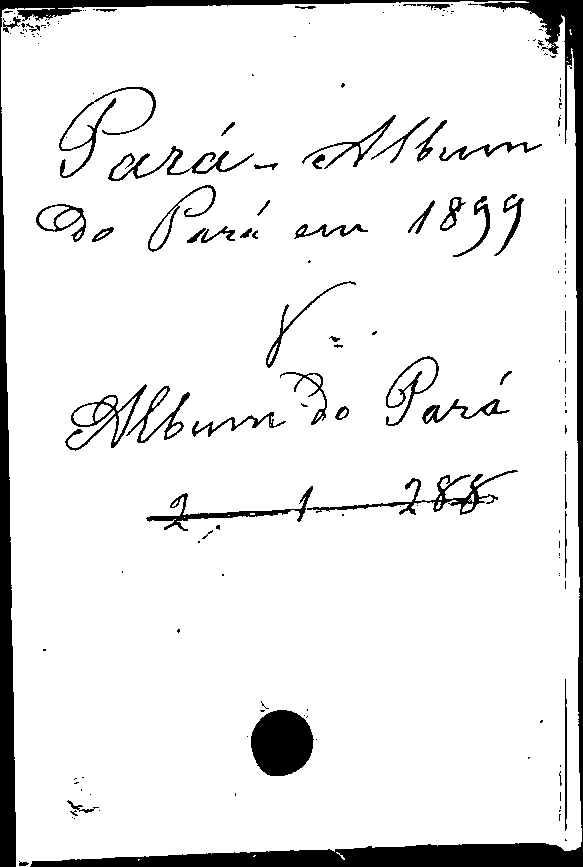 Pará - Album
do Pará em 1899
V =
Album do Pará
2 1 288